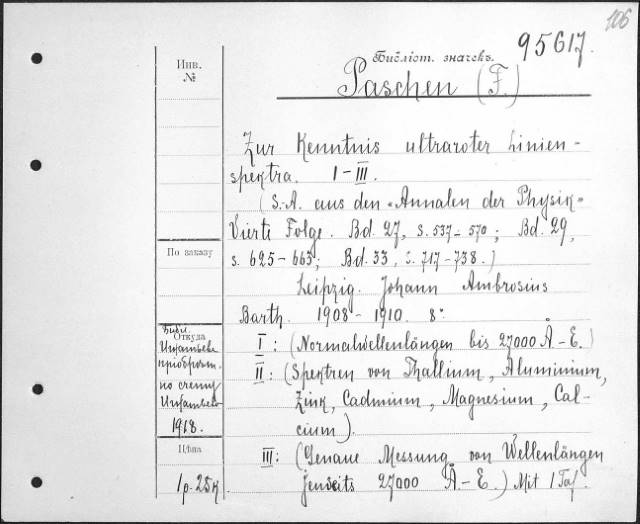 106
95617.
Библіот. значекъ.
Инв.
№
Paschen (F.)
Zur Kenntnis ultraroter Linien-
spektra. I-III.
(S.-A. aus den "Annalen der Physik"
Vierte Folge. Bd. 27, S. 537-570; Bd. 29,
s. 625-663; Bd. 33, s. 717-738.)
По заказу
Leipzig. Johann Ambrosius
Barth. 1908-1910. 8°.
Откуда
Библ.
пріобрѣт.
по счету
1918.
I: (Normalwellenlängen bis 27000 Å-E.)
II: (Spektren von Thallium, Aluminium,
Zink, Cadmium, Magnesium, Cal-
cium).
Цѣна
1р. 25к
III: (Genaue Messung von Wellenlängen
jenseits 27000 Å.-E.) Mit 1 Taf.